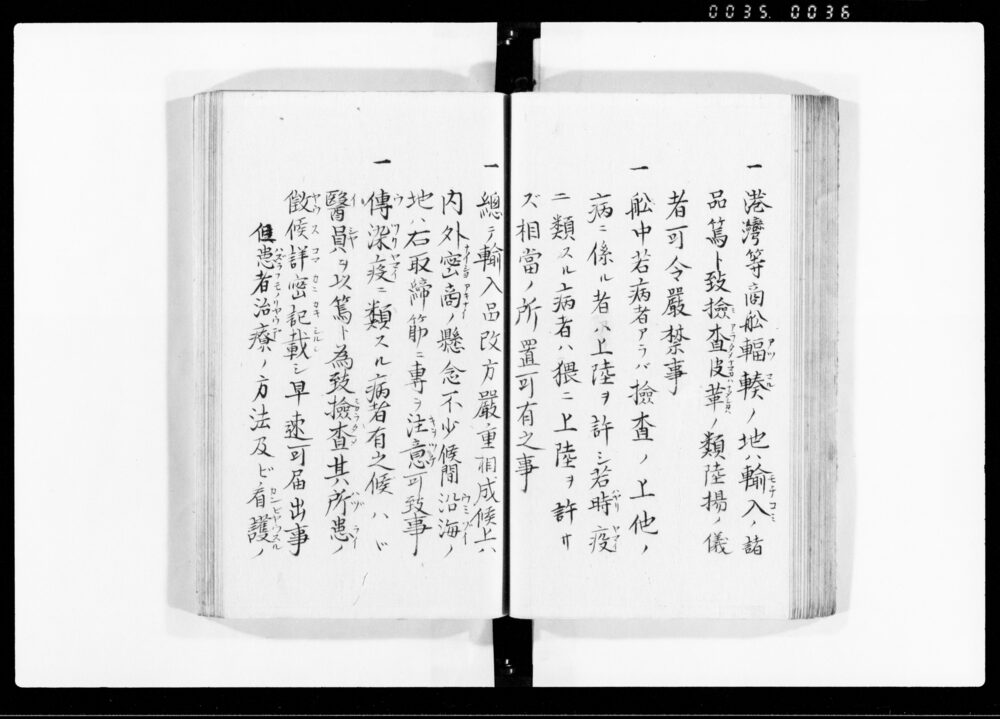 0035. 0036
一 港灣等商舩輻輳ノ地ハ輸入ノ諸
品篤ト致撿査皮革ノ類陸揚ノ儀
者可令嚴禁事
一 舩中若病者アラバ撿査ノ上他ノ
病ニ係ル者ハ上陸ヲ許シ若時疫
ニ類スル病者ハ猥ニ上陸ヲ許サ
ズ相當ノ所置可有之事
一 總テ輸入品改方嚴重相成候上ハ
内外密商ノ懸念不少候間沿海ノ
地ハ右取締筋ニ專ラ注意可致事
一 傳染疫ニ類スル病者有之候ハヾ
醫員ヲ以篤ト為致撿査其所患ノ
徴候詳密記載シ早速可届出事
但患者治療ノ方法及ビ看護ノ